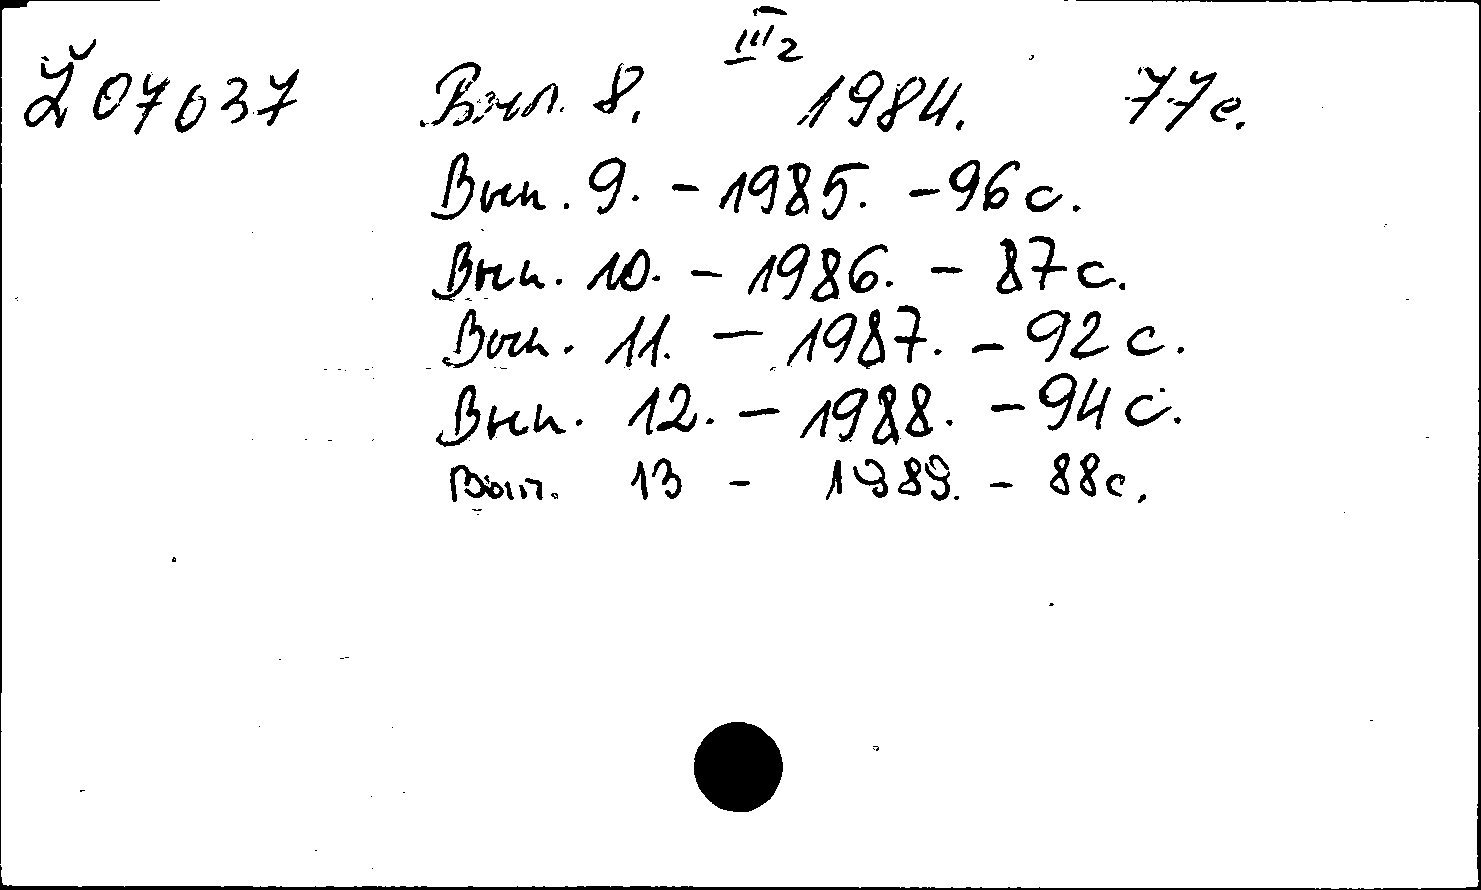 III 2
Ž 07637 Вып. 8. 1984. 77 с.
Вып. 9. – 1985. – 96 с.
Вып. 10. – 1986. – 87 с.
Вып. 11. – 1987. – 92 с.
Вып. 12. – 1988. – 94 с.
Вып. 13 – 1989. – 88 с.